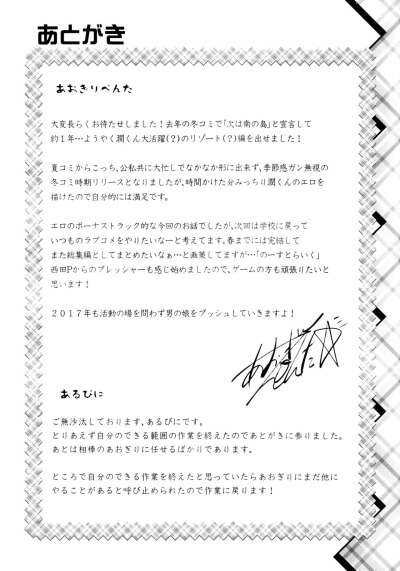 あとがき
あおきりぺんた
大変長らくお待たせしました！去年の冬コミで「次は南の島」と宣言して
約１年…ようやく潤くん大活躍(？)のリゾート(？)編を出せました！
夏コミからこっち、公私共に大忙しでなかなか形に出来ず、季節感ガン無視の
冬コミ時期リリースとなりましたが、時間かけた分みっちり潤くんのエロを
描けたので自分的には満足です。
エロのボーナストラック的な今回のお話でしたが、次回は学校に戻って
いつものラブコメをやりたいなーと考えてます。春までには完結して
また総集編としてまとめたいなぁ…と画策してますが…「のーすとらいく」
西田Pからのプレッシャーも感じ始めましたので、ゲームの方も頑張りたいと
思います！
２０１７年も活動の場を問わず男の娘をプッシュしていきますよ！
あるぴに
ご無沙汰しております、あるぴにです。
とりあえず自分のできる範囲の作業を終えたのであとがきに参りました。
あとは相棒のあおぎりに任せるばかりであります。
ところで自分のできる作業を終えたと思っていたらあおぎりにまだ他に
やることがあると呼び止められたので作業に戻ります！